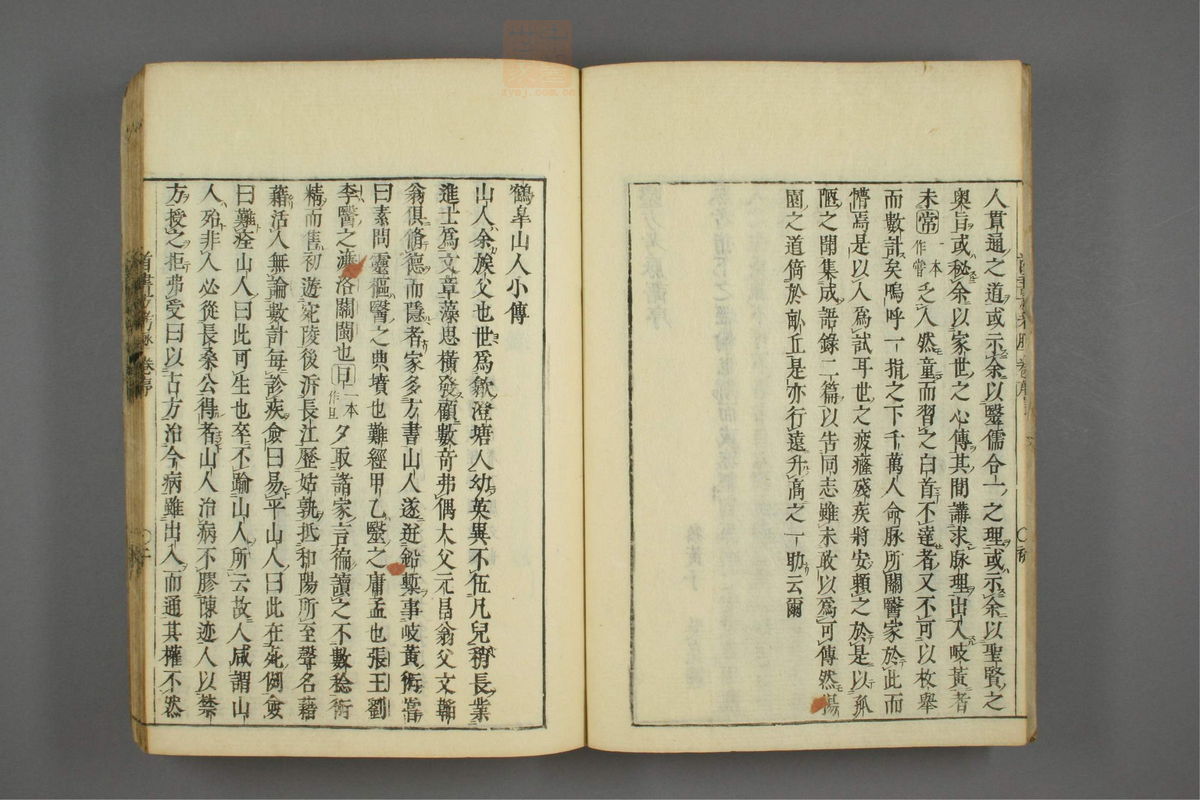 人貫通之道或示余以醫儒合一之理或示余以聖賢之
奧旨或秘余以家世之心傳其間講求脉理出入岐黃者
未常一本作嘗乏人然童而習之白首不達者又不可以枚舉
而數計矣嗚呼一指之下千萬人命脉所關醫家於此而
懵焉是以人爲試耳世之疲癃殘疾將安頼之於是以孤
陋之聞集成語錄二篇以告同志雖未敢以爲可傳然
園之道倚於畝丘是亦行遠升高之一助云爾
鶴皐山人小傳
山人余族父也世爲歙澄塘人幼英異不伍凡兒稍長業
進士爲文章藻思橫發顧數奇弗偶大父元昌翁父文韜
翁俱脩德而隱者家多方書山人遂逃鉛槧事岐黃術嘗
曰素問靈樞醫之典墳也難經甲乙醫之庸孟也張王劉
李醫之濂洛關閩也日一本作旦夕取諸家言徧讀之不數稔術
精而售初遊宛陵後泝長江歷姑孰抵和陽所至聲名藉
藉活人無論數計每診疾僉曰易平山人曰此在死例僉
曰難痊山人曰此可生也卒不踰山人所云故人咸謂山
人殆非人必從長桑公得者山人治病不膠陳迹人以禁
方授之拒弗受曰以古方治今病雖出入而通其權不然